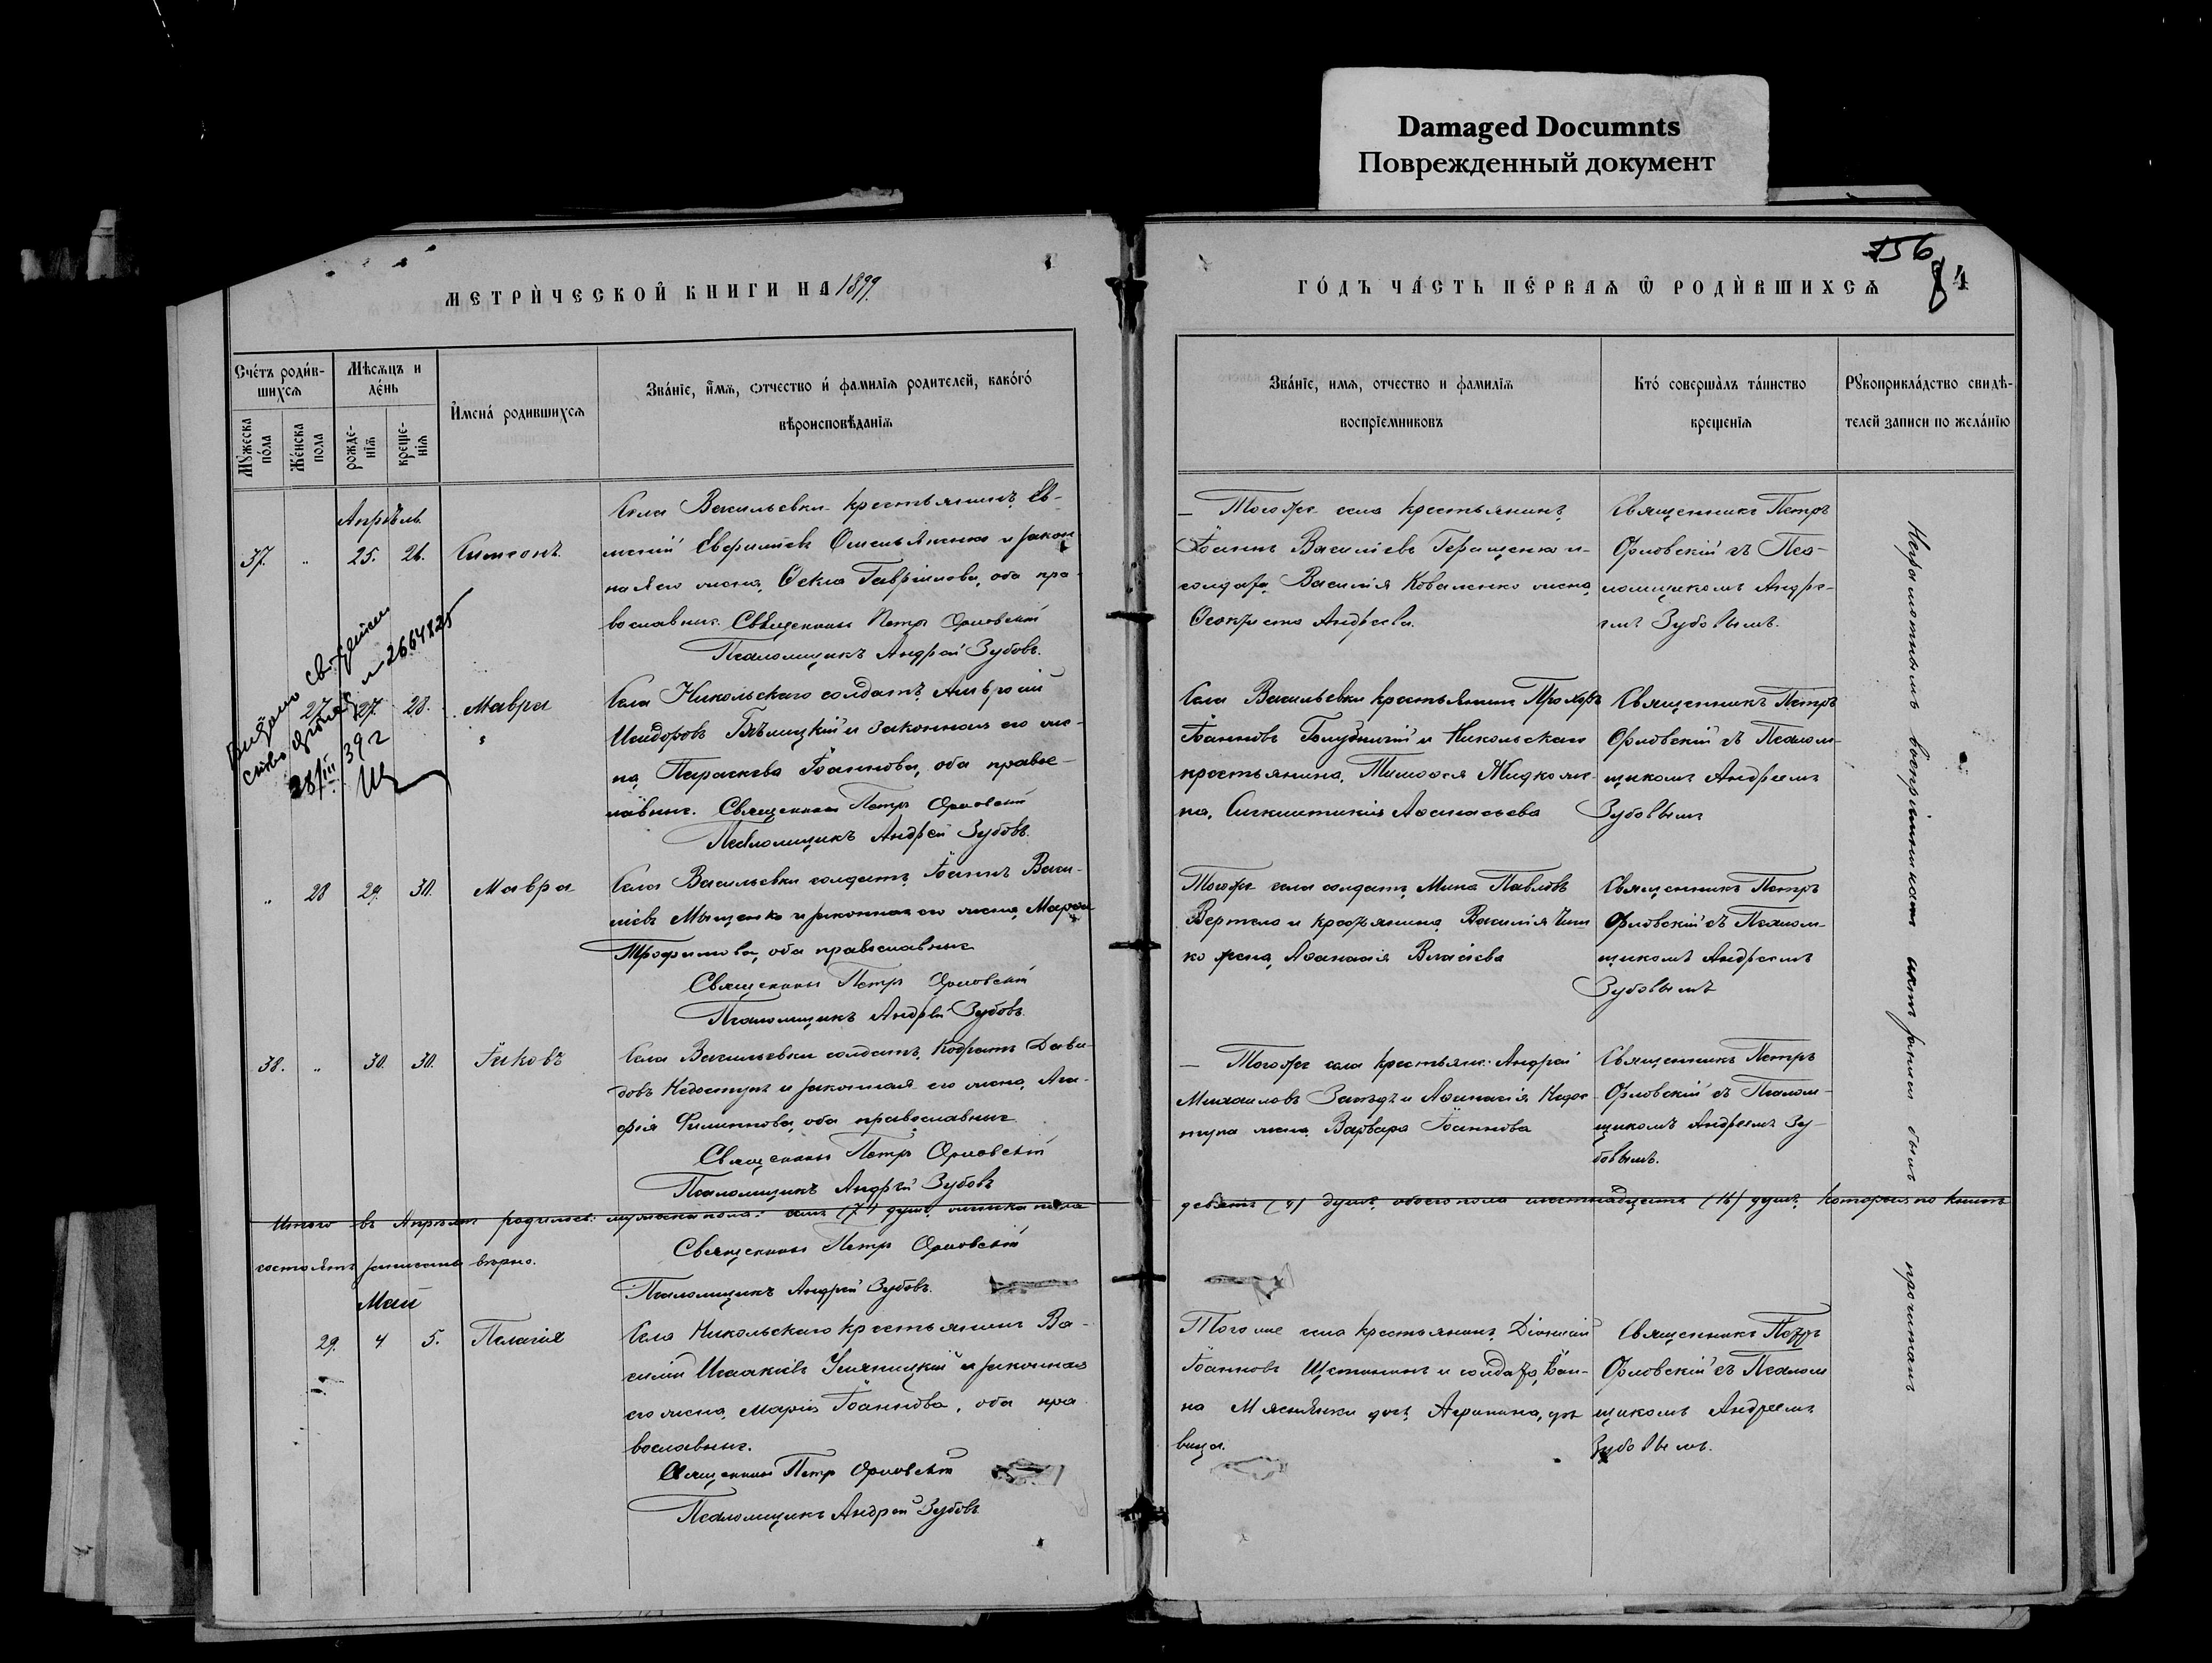 Damaged Documnts
Поврежденный документ
156
84
МЕТРИ́ЧЕСКОЙ КНИГИ НА 1899
ГО́ДЪ ЧА́СТЬ ПЕ́РВАѦ Ѿ РОДИ́ВШИХСѦ
Сче́тъ роди́в-
шихсѧ
Мѣ́сѧцъ и
де́нь
И҆мена́ родившихсѧ
Зва́нїе, и҆́мѧ, ѻтчество и҆ фамилїѧ родителей, како́гѡ
вѣроисповѣданїѧ
Мꙋжеска
по́ла
Же́нска
пола
рожде-
нїѧ
креще-
нїѧ
Зва́нїе, имѧ, отчество и фамилїѧ
воспрїемниковъ
Кто̀ совершалъ та́инство
крещенїѧ
Рꙋкоприкла́дство свидѣ-
телей записи по жела́нїю
Апрѣль
37. „ 25. 26. Симеонъ
Села Васильевки крестьянинъ, Ев-
Евфиміевъ Омельяненко и закон
ная его жена, Ѳекла Гавріилова, оба пра-
вославные. Священникъ Петръ Орловскій
Псаломщикъ Андрей Зубовъ.
— Того же села крестьянинъ,
Іоаннъ Василіевъ Геращенко и
солдата, Василія Коваленко жена,
Ѳеоктиста Андреева.
Священникъ Петръ
Орловскій съ Пса-
ломщикомъ Андре-
емъ Зубовымъ.
Выдано свидѣтель
ство
28/III 39 г
27. 27. 28. Мавра
Села Никольскаго солдатъ, Амвросій
Исидоровъ Бѣлицкій и законная его же-
на, Параскева Іоаннова, оба правос-
лавные. Священникъ Петръ Орловскій
Псаломщикъ Андрей Зубовъ.
Села Васильевки крестьянинъ Прохоръ
Іоанновъ Голубничій и Никольскаго
крестьянина, Тимоѳея
на, Синклитикія Аѳанасьева
Священникъ Петръ
Орловскій съ Псалом-
щикомъ Андреемъ
Зубовымъ
„ 28 29. 30. Мавра
Села Васильевки солдатъ, Іоаннъ Васи-
ліевъ Мищенко и законная его жена, Марѳа
Трофимова, оба православные
Священникъ Петръ Орловскій
Псаломщикъ Андрей Зубовъ.
Того же села солдатъ, Мина Павловъ
Вертело и крестьянина, Василія
ко жена, Аѳанасія Власіева
Священникъ Петръ
Орловскій съ Псалом-
щикомъ Андреемъ
Зубовымъ
38. „ 30. 30. Іаковъ
Села Васильевки солдатъ, Кодратъ Дави-
довъ Недоступъ и законная его жена, Ага-
фія Филиппова, оба православные
Священникъ Петръ Орловскій
Псаломщикъ Андрей Зубовъ
— Того же села крестьян: Андрей
Михаиловъ и Аѳанасія Недос-
тупа жена, Варвара Іоаннова
Священникъ Петръ
Орловскій съ Псалом-
щикомъ Андреемъ Зу-
бовымъ.
Итого въ Апрѣлѣ родилось: мужеска пола: семь (7) душъ, женска пола
девять (9) душъ, обоего пола шестнадцать (16) душъ, которыя по книгѣ
состоятъ записаны вѣрно.
Священникъ Петръ Орловскій
Псаломщикъ Андрей Зубовъ.
Май
29. 4 5. Пелагія
Села Никольскаго крестьянинъ Ва-
силій Исаакіевъ и законная
его жена, Марія Іоаннова, оба пра-
вославные.
Священникъ Петръ Орловскій
Псаломщикъ Андрей Зубовъ.
Того же села крестьянинъ, Діонисій
Іоанновъ Щетининъ и солдата, Іоан-
на дочь, Агрипина, дѣ-
вица.
Священникъ Петръ
Орловскій съ Псалом
щикомъ Андреемъ
Зубовымъ.
Неграмотнымъ воспріемникамъ актъ записи былъ прочитанъ